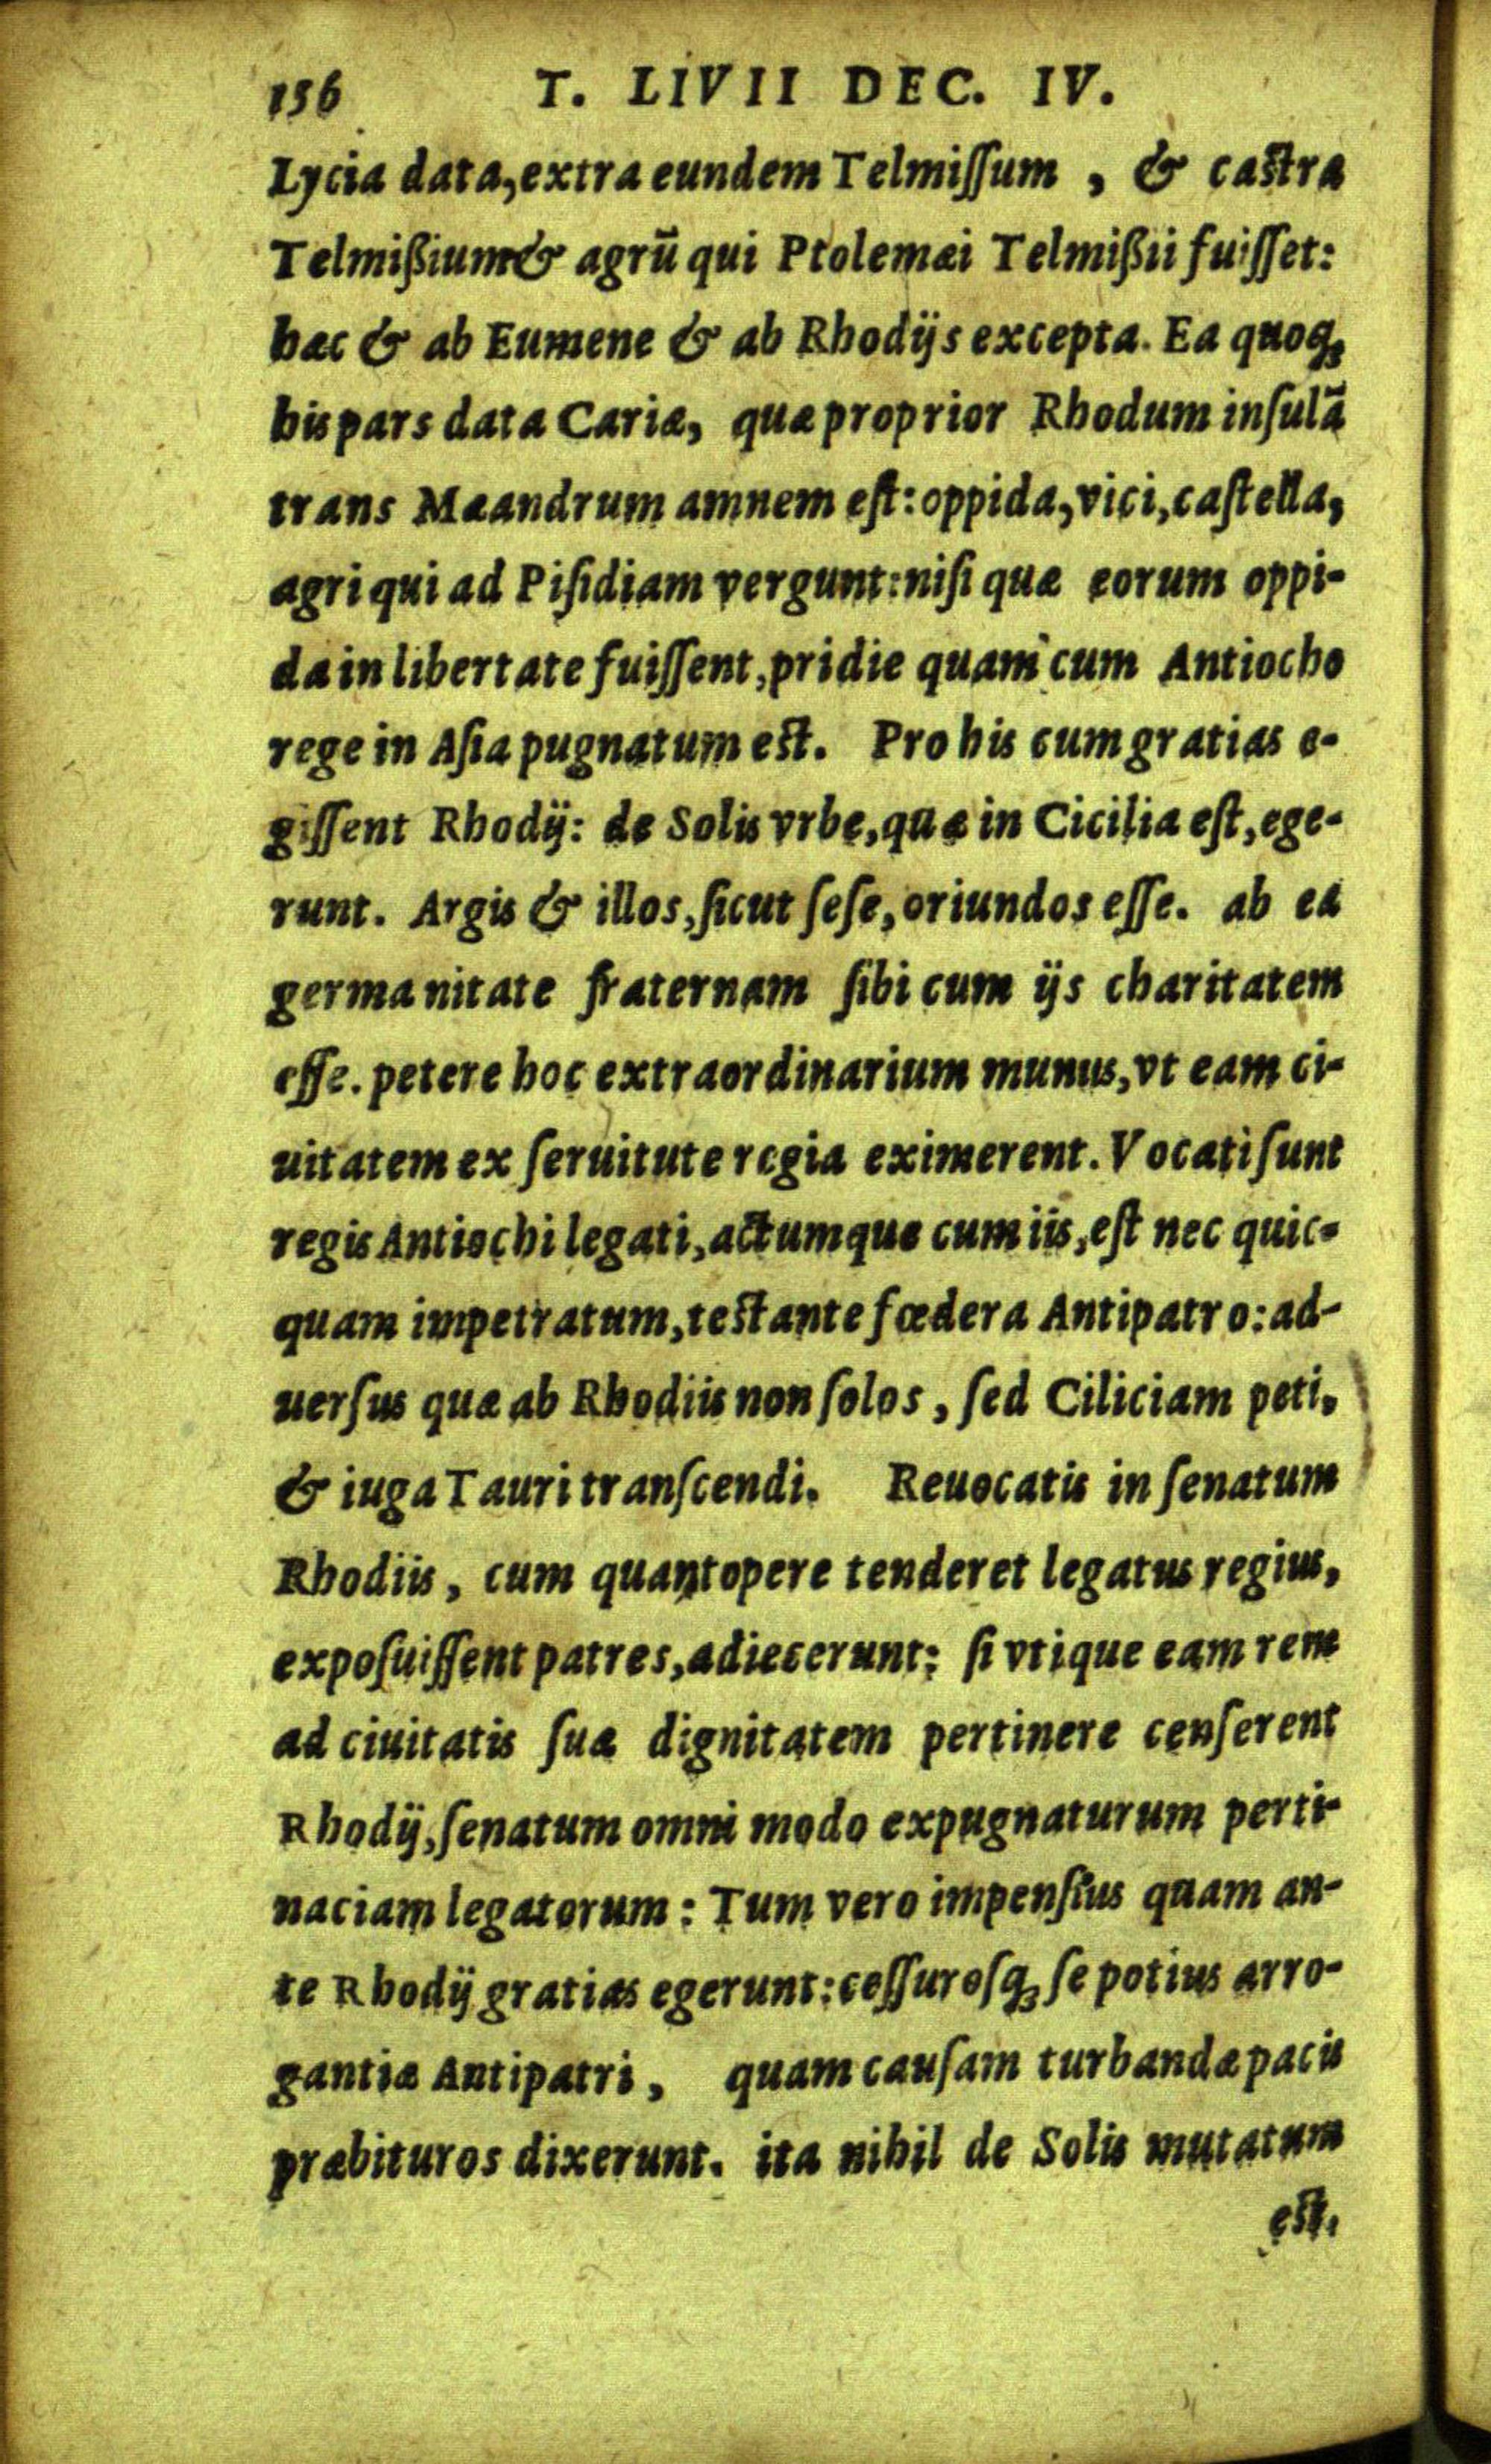 156 T. LIVII DEC. IV.
Lycia data, extra eundem Telmiſſum, & castra
Telmißium & agrū qui Ptolemæi Telmißii fuiſſet:
hæc & ab Eumene & ab Rhodijs excepta. Ea quoq;
his pars data Cariæ, quæ proprior Rhodum inſulā
trans Mæandrum amnem eſt: oppida, vici, caſtella,
agri qui ad Piſidiam vergunt: niſi quæ eorum oppi-
da in libertate fuiſſent, pridie quam cum Antiocho
rege in Aſia pugnatum est. Pro his cum gratias e-
giſſent Rhodij: de Solis vrbe, quæ in Cicilia eſt, ege-
runt. Argis & illos, ſicut ſeſe, oriundos eſſe. ab ea
germanitate fraternam ſibi cum ijs charitatem
eſſe. petere hoc extraordinarium munus, vt eam ci-
uitatem ex ſeruitute regia eximerent. Vocati ſunt
regis Antiochi legati, actumque cum iis, eſt nec quic-
quam impetratum, testante fœdera Antipatro: ad-
uerſus quæ ab Rhodiis non ſolos, ſed Ciliciam peti,
& iuga Tauri tranſcendi. Reuocatis in ſenatum
Rhodiis, cum quantopere tenderet legatus regius,
expoſuiſſent patres, adiecerunt: ſi vtique eam rem
ad ciuitatis ſuæ dignitatem pertinere cenſerent
Rhodij, ſenatum omni modo expugnaturum perti-
naciam legatorum: Tum vero impenſius quam an-
te Rhodij gratias egerunt: ceſſuroſq; ſe potius arro-
gantiæ Antipatri, quam cauſam turbandæ pacis
præbituros dixerunt. ita nihil de Solis mutatum
est.